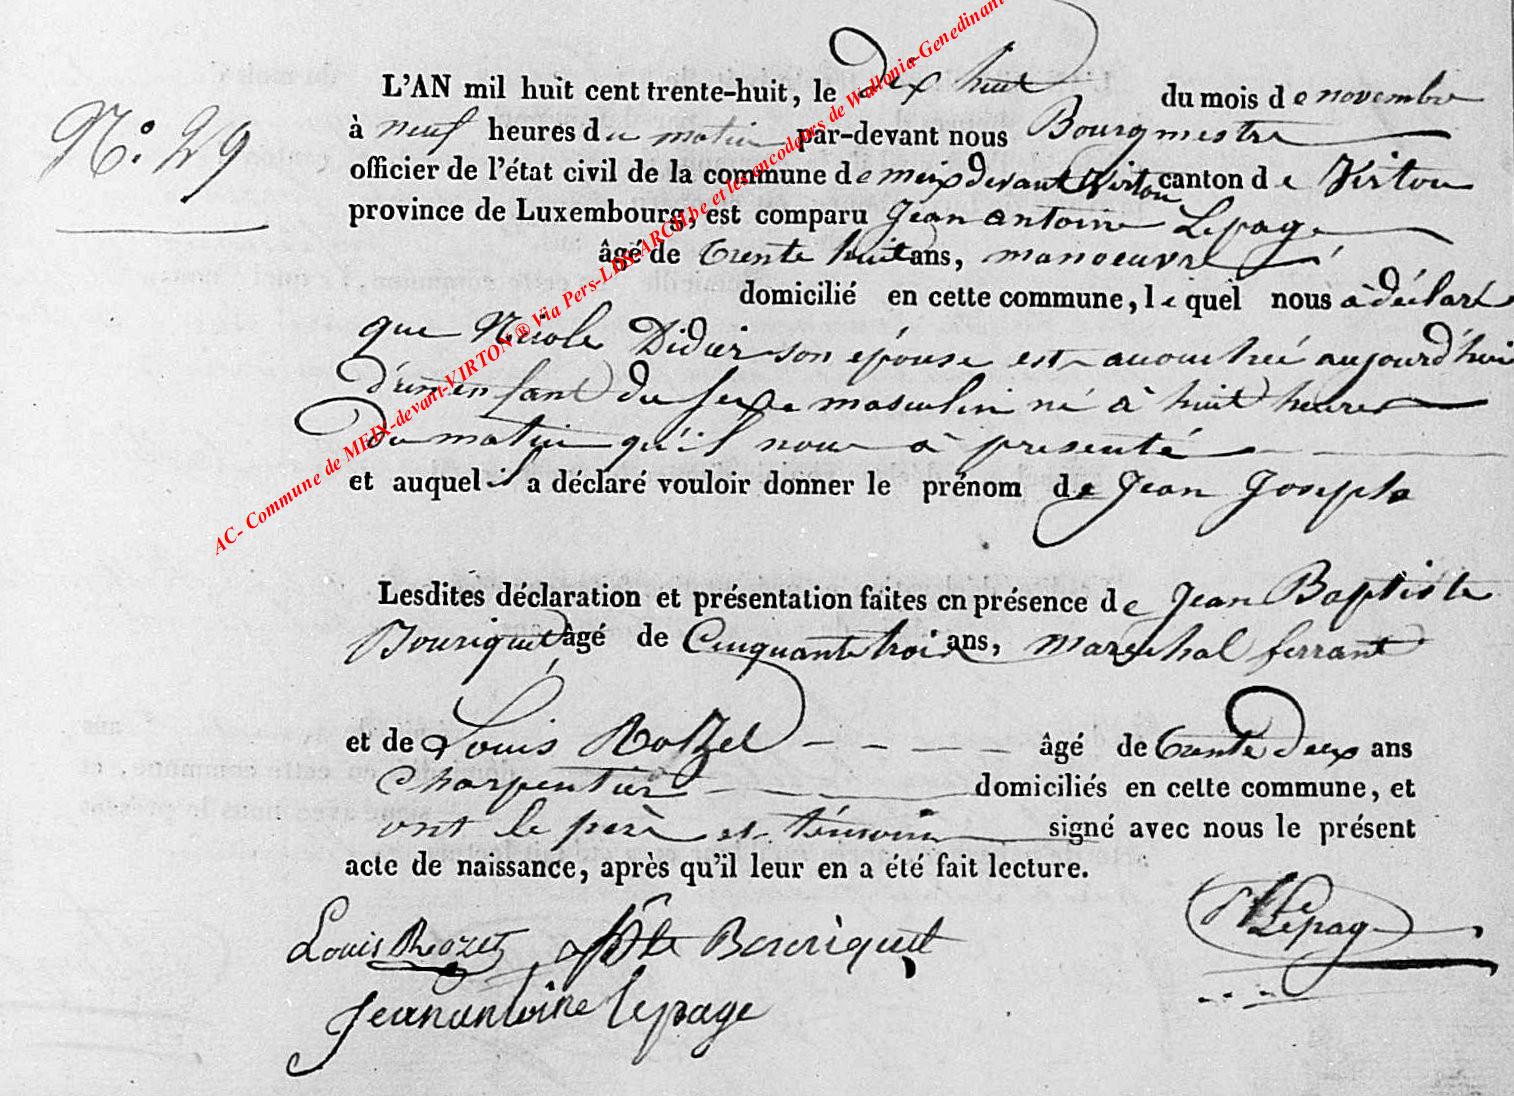 N.° 29
L'AN mil huit cent trente-huit, le dix huit du mois de novembre
à neuf heures du matin par-devant nous Bourgmestre
officier de l'état civil de la commune de meix devant Virton canton de Virton
province de Luxembourg, est comparu Jean antoine Lepage
âgé de trente huit ans, manoeuvre
domicilié en cette commune, le quel nous à déclaré
que Nicole Didier son épouse est accouchée aujourd'hui
d'un enfant du sexe masculin né à huit heures
du matin qu'il nous à presenté
et auquel il a déclaré vouloir donner le prénom de Jean Joseph
Lesdites déclaration et présentation faites en présence de Jean Baptiste
Bouriquet âgé de Cinquante trois ans, marechal ferrant
et de Louis Rotzel âgé de trente deux ans
charpentier domiciliés en cette commune, et
ont le père et témoin signé avec nous le présent
acte de naissance, après qu'il leur en a été fait lecture.
Louis Bouriquet Lepage
Jean antoine lepage
AC- Commune de MEIX-devant-VIRTON ® Via Pers-LUX-ARCH.be et les encodeurs de Wallonia-Genedinant